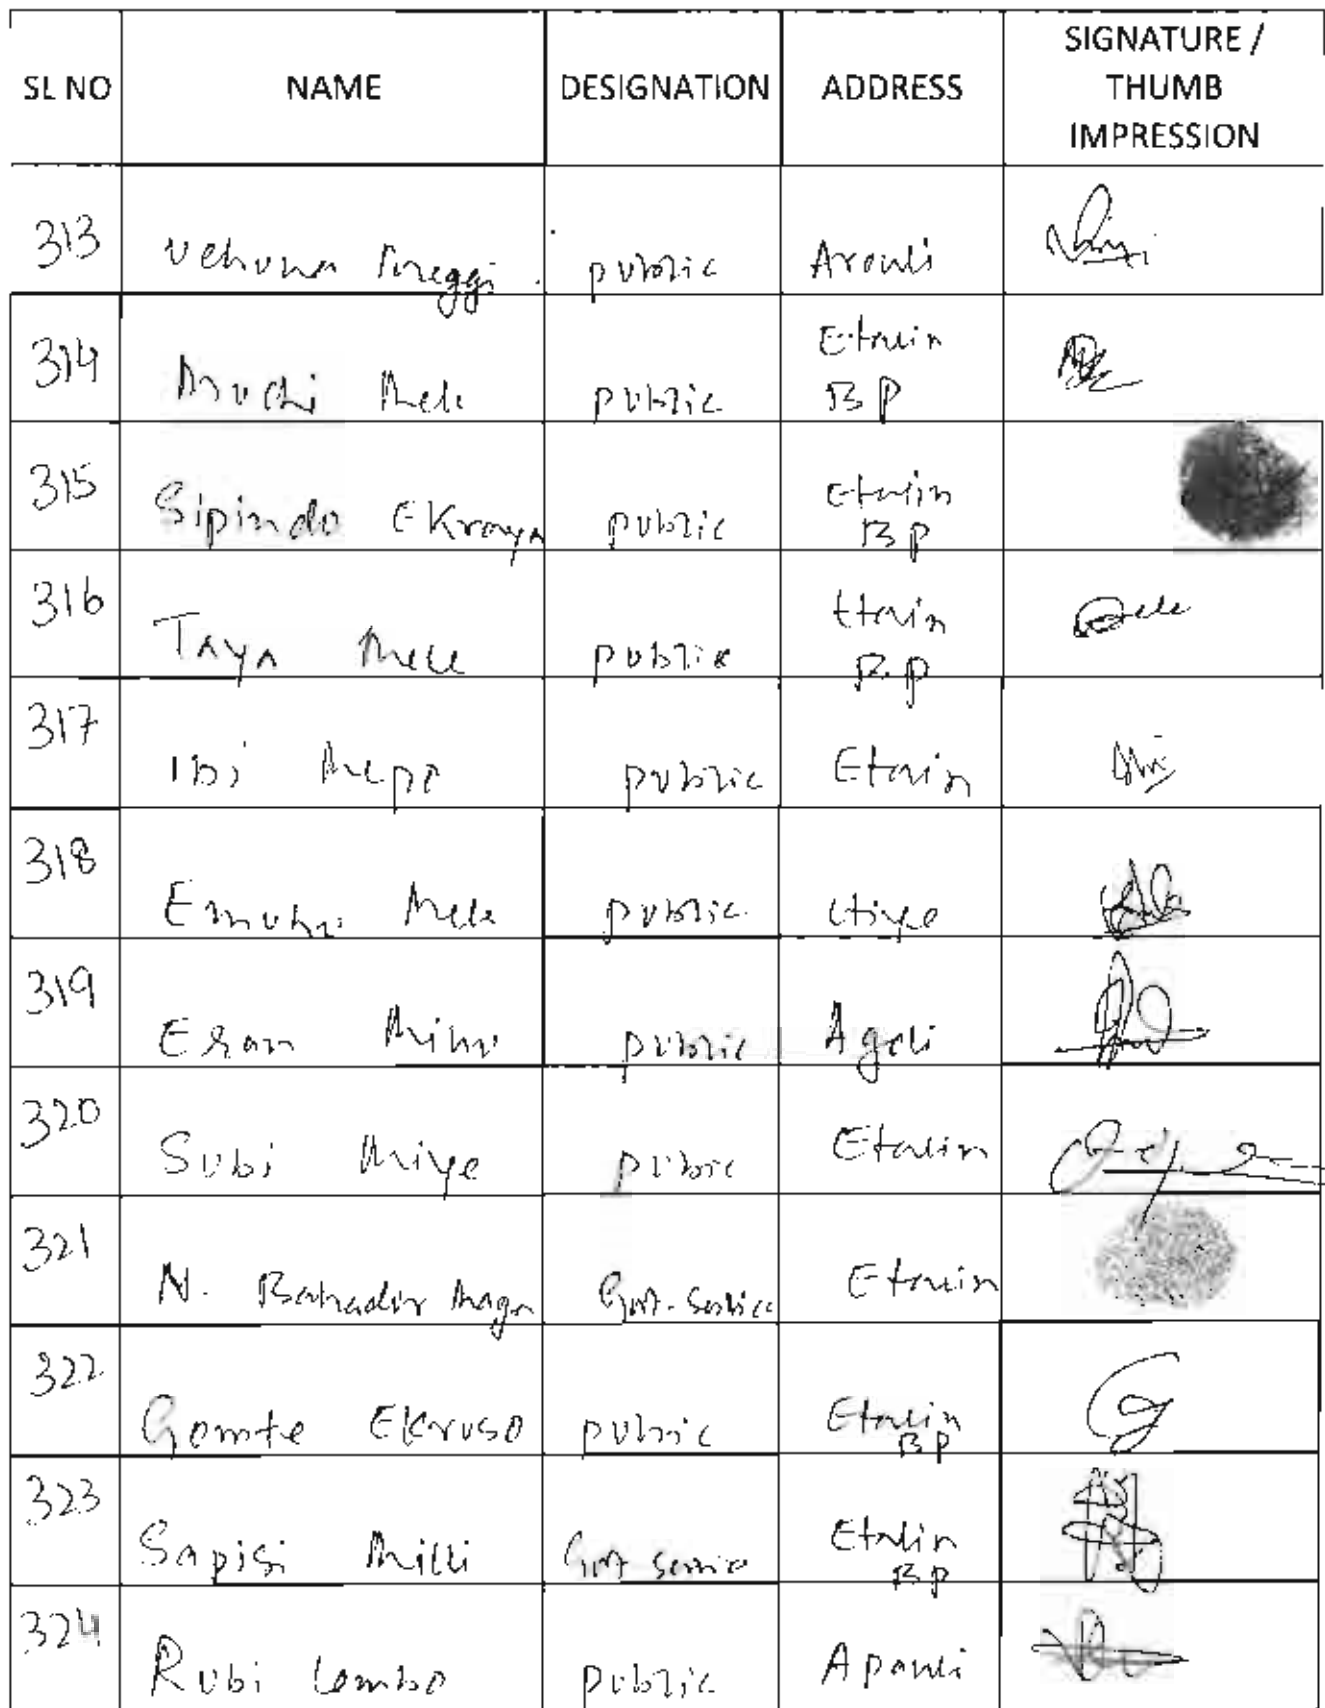 SL NO NAME DESIGNATION ADDRESS SIGNATURE / THUMB IMPRESSION
313 public Arouli
314 Mele public Etalin BP
315 Sipindo Ekraya public Etalin BP
316 Taya Mele public Etalin BP
317 Ibi Mepo public Etalin
318 Mele public
319 Eran public
320 Subi Miye public Etalin
321 N. Bahadur Govt. Service Etalin
322 Gomte Ekruso public Etalin BP
323 Sapisi Milli Govt Service Etalin BP
324 Rubi Lombo public Apanli